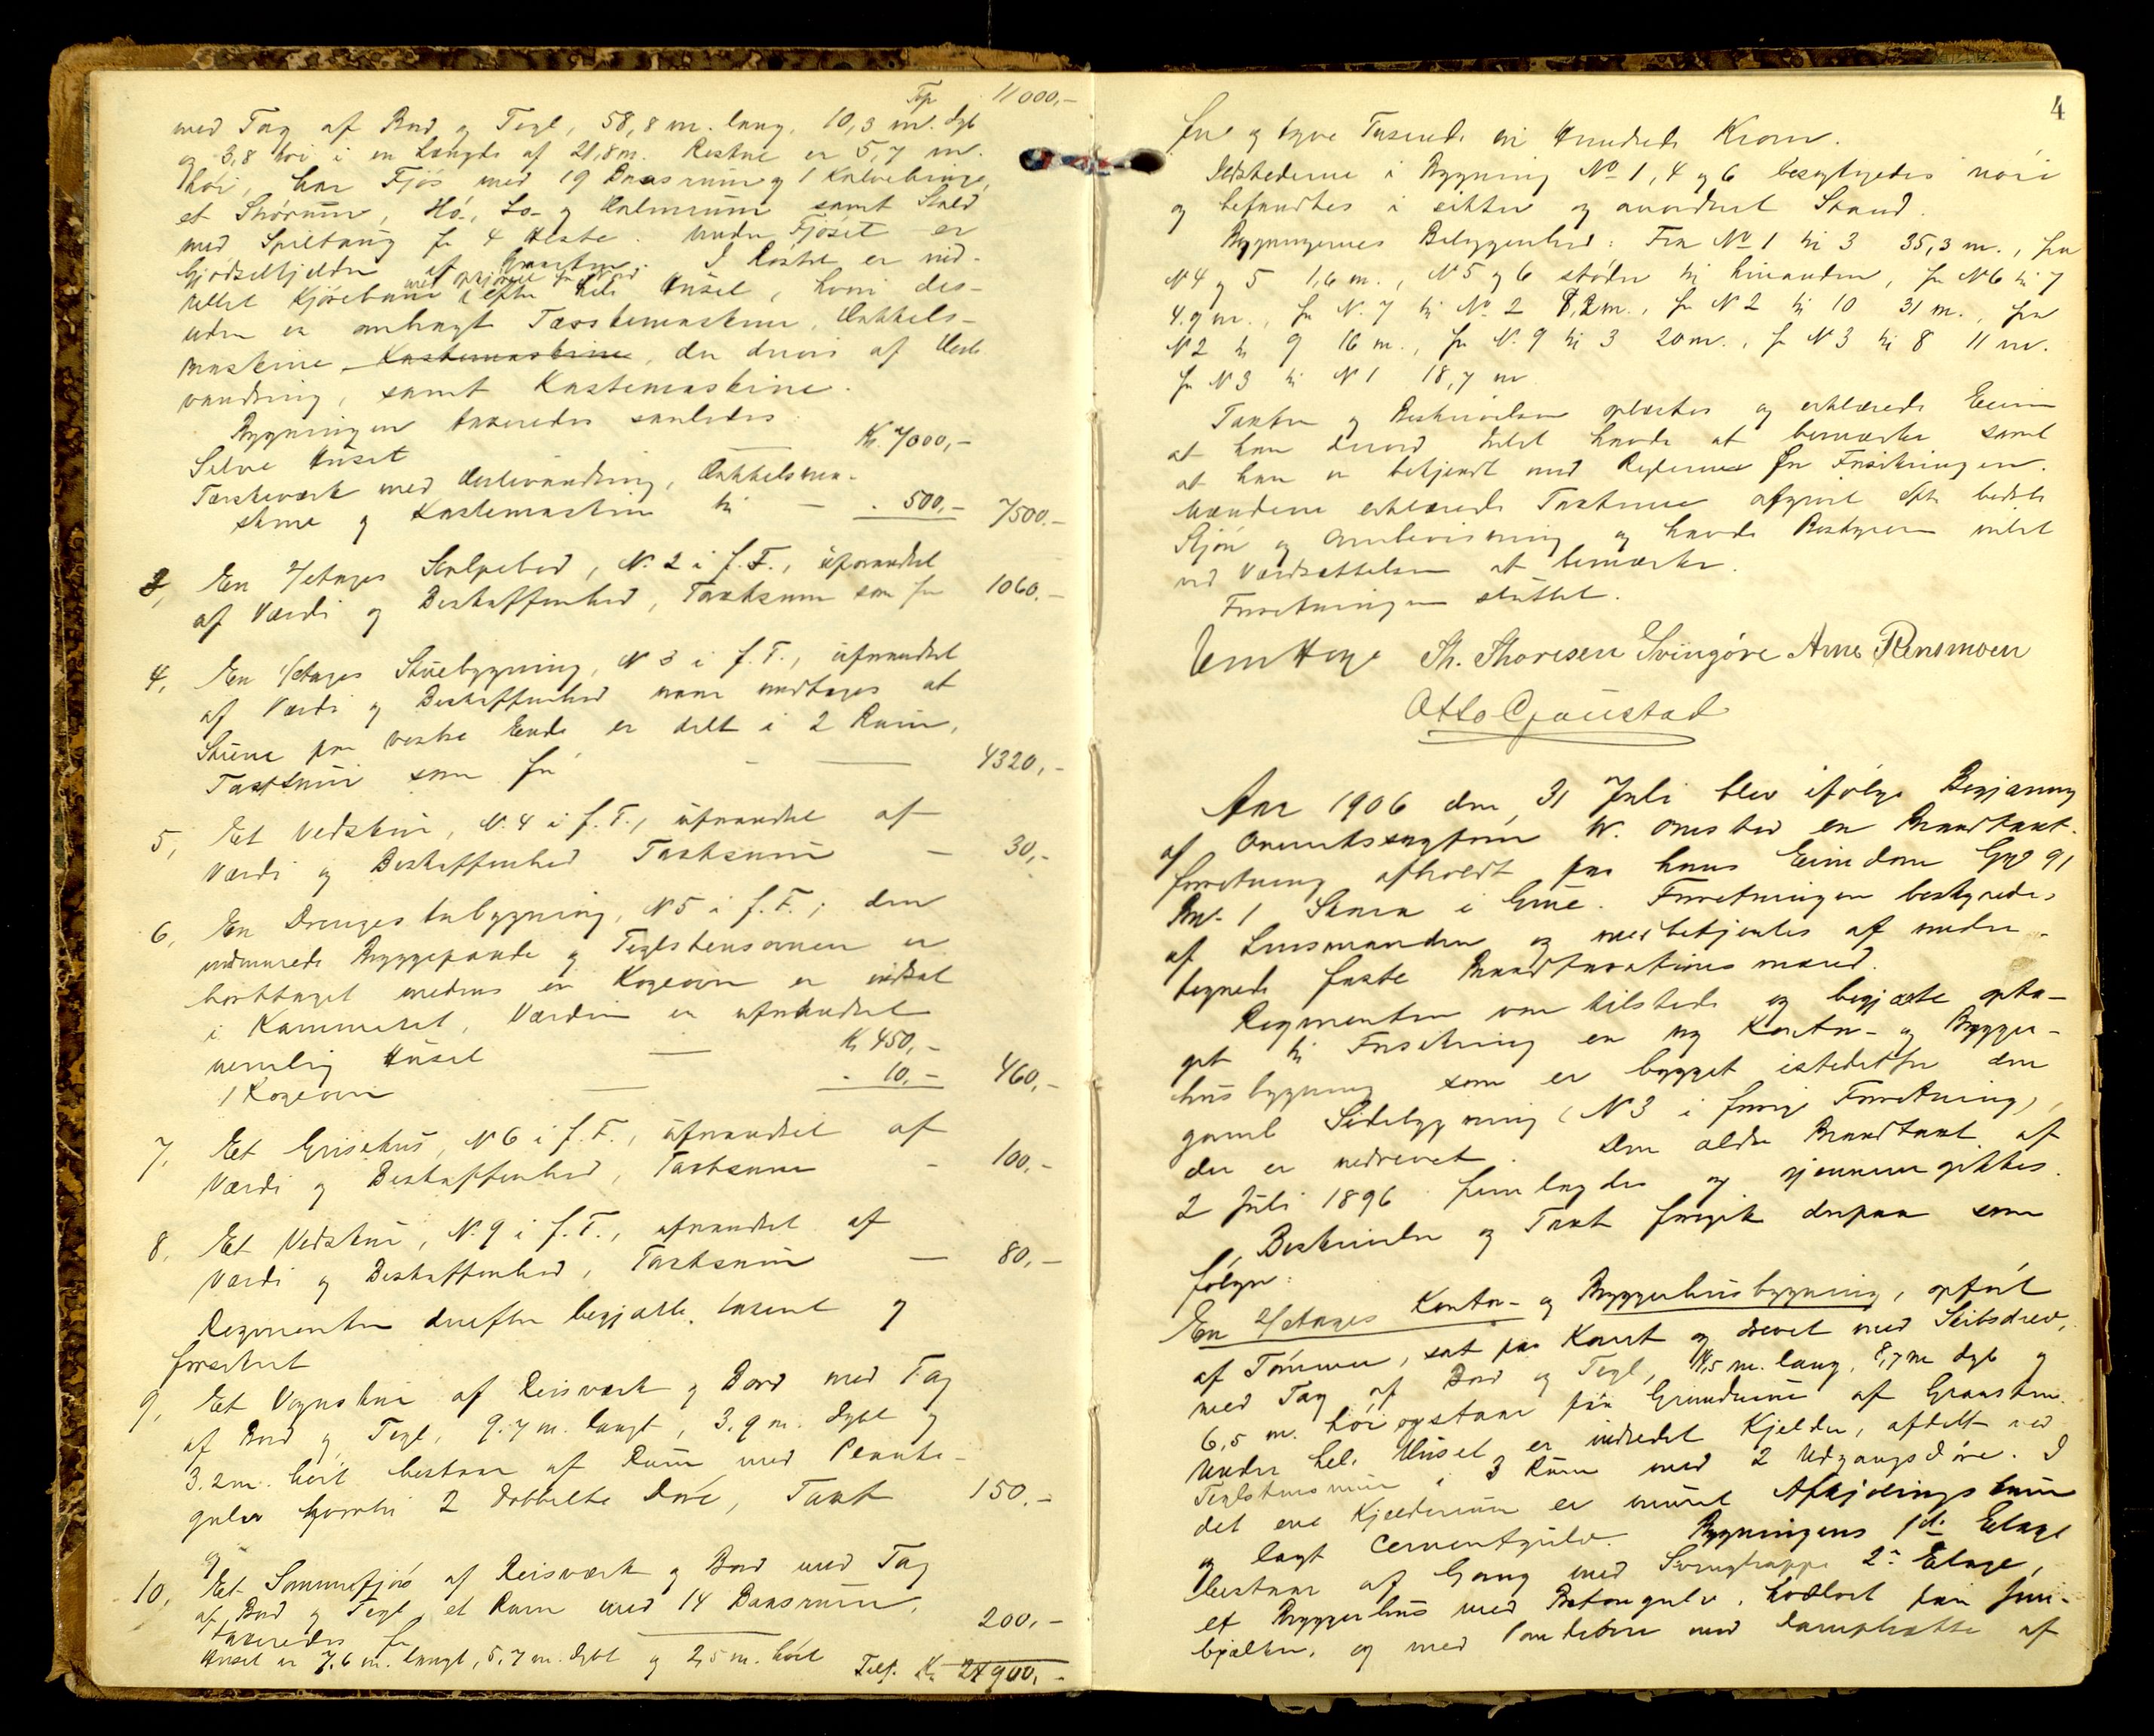 Trp 11000,-
med Tag af Bord og Tegl, 58,8 m. lang, 10,3 m. dyb
og 3,8 høi i en Længde af 21,8 m. Resten er 5,7 m.
høi, har Fjøs med 19 Baasrum og 1 Kalvebinge,
et Skørum, Hø-, Lo- og Halmrum samt Stald
med Spiltaug for 4 Heste. Under Fjøset er
Gjødselkjelder af Graasten. I Røstet er ind-
redet Kjørebane med opkjørsel fra Nord efter hele Huset, hvori des-
uden er anbragt Tærskemaskine, Hakkels-
maskine, Kastemaskine, der drives af Heste
vandring, samt Kastemaskine.
Bygningen taxeredes saaledes
Selve Huset Kr. 7000,-
Tærskeværk med Hestevandring, Hakkelsma-
skine og Kastemaskine til - " 500,- 7500.-
3, En 2/etages Stolpebod, N. 2 i f. F., uforandret
af Værdi og Beskaffenhed, Taxtsum som før 1060.-
4, En 1/etages Stuebygning, N 3 i f. F., uforandret
af Værdi og Beskaffenhed naar undtages at
Stuen paa vestre Ende er delt i 2 Rum,
Taxtsum som før - 4320,-
5, Et Vedskur, N. 4 i f. F., uforandret af
Værdi og Beskaffenhed Taxtsum - 30,-
6, En Drengestubygning, N 5 i f. F.; den
indmurede Bryggepande og Teglstensovnen er
borttaget medens en Kogeovn er indsat
i Kammeret, Værdien er uforandret
nemlig Huset - Kr 450,-
1 Kogeovn - " 10,- 460,-
7, Et Grisehus, N 6 i f. F., uforandret af
Værdi og Beskaffenhed, Taxtsum - 100,-
8, Et Vedskur, N. 9 i f. F., uforandret af
Værdi og Beskaffenhed, Taxtsum - 80,-
Rekvirenten derefter begjærte taxeret og
forsikret
9, Et Vognskur af Reisværk og Bord med Tag
af Bord og Tegl, 9.7 m. langt, 3.9 m. dybt og
3.2 m. høit bestaar af Rum med Planke-
gulv hvortil 2 dobbelte Døre, Taxt 150.-
10, Et Sommerfjøs af Reisværk og Bord med Tag
af Bord og Tegl, et Rum med 14 Baasrum,
taxeredes for 200,-
Huset er 7,6 m. langt, 5,7 m. dybt og 2,5 m. høit Tils. Kr 24900,-
4
fire og tyve Tusende ni Hundrede Kroner.
Ildstederne i Bygning No 1, 4 og 6 besigtigedes nøie
og befandtes i sikker og anordnet Stand.
Bygningernes Beliggenhed: Fra No 1 til 3 35,3 m., fra
N 4 og 5 1,6 m., N 5 og 6 støder til hinanden, fra N 6 til 7
4.9 m., fra N. 7 til No 2 8,2 m., fra N 2 til 10 31 m., fra
N 2 til 9 16 m., fra N. 9 til 3 20 m., fra N 3 til 8 11 m.
fra N 3 til N 1 18,7 m
Taxten og Beskrivelsen oplæstes og erklærede Eieren
at han derved Intet havde at bemærke samt
at han er bekjendt med Reglerne for Forsikringen.
Mændene erklærede Taxterne afgivet efter bedste
Skjøn og Overbevisning og havde Bestyreren intet
ved Værdsættelsen at bemærke.
Forretningen sluttet.
Even Hoye Th. Thoresen Svingøre Arne Rensmoen
Otto Gjaustad
Aar 1906 den 31 Juli blev ifølge Begjæring
af Overretssagfører W. Omsted en Brandtaxt-
forretning afholdt paa hans Eiendom Gno 91
Bno. 1 Skara i Grue. Forretningen bestyredes
af Lensmanden og meddbetjentes af under-
tegnede faste Brandtaxationsmænd.
Rekvirenten var tilstede og begjærte opta-
get til Forsikring en ny Kontor- og Brygger-
husbygning som er bygget istedetfor den
gamle Sidebygning (N 3 i forrige Forretning),
der er nedrevet. Den ældre Brandtaxt af
2 Juli 1896 fremlagdes og gjennemgikkes.
Beskrivelse og Taxt foregik derpaa som
følger:
En 2/etages Kontor- og Bryggerhusbygning, opført
af Tømmer, sat paa Kant og drevet med Skibsdrev,
med Tag af Bord og Tegl, 11,5 m. lang, 8,7 m dyb og
6,5 m. høi opstaar paa Grundmur af Graasten.
Under hele Huset er indredet Kjelder, afdelt ved
Teglstensmur i 3 Rum med 2 Udgangsdøre. I
det ene Kjælderrum er muret Afkjølingskum
og lagt Cementgulv. Bygningens 1ste Etage
bestaar af Gang med Svingtrappe 2den Etage,
et Bryggerhus med Betongulv, hvælvet paa Jern-
bjælker, og med Pandemur med Damphætte af